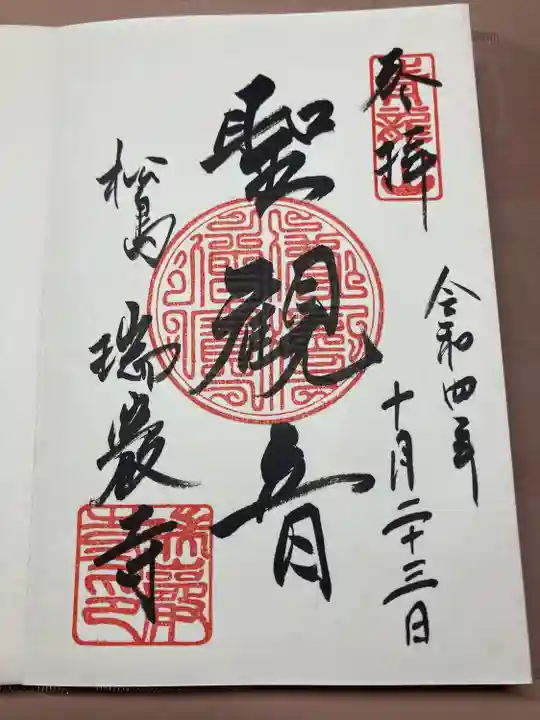 奉拝
令和四年
十月二十三日
聖観音
松島
瑞巌寺